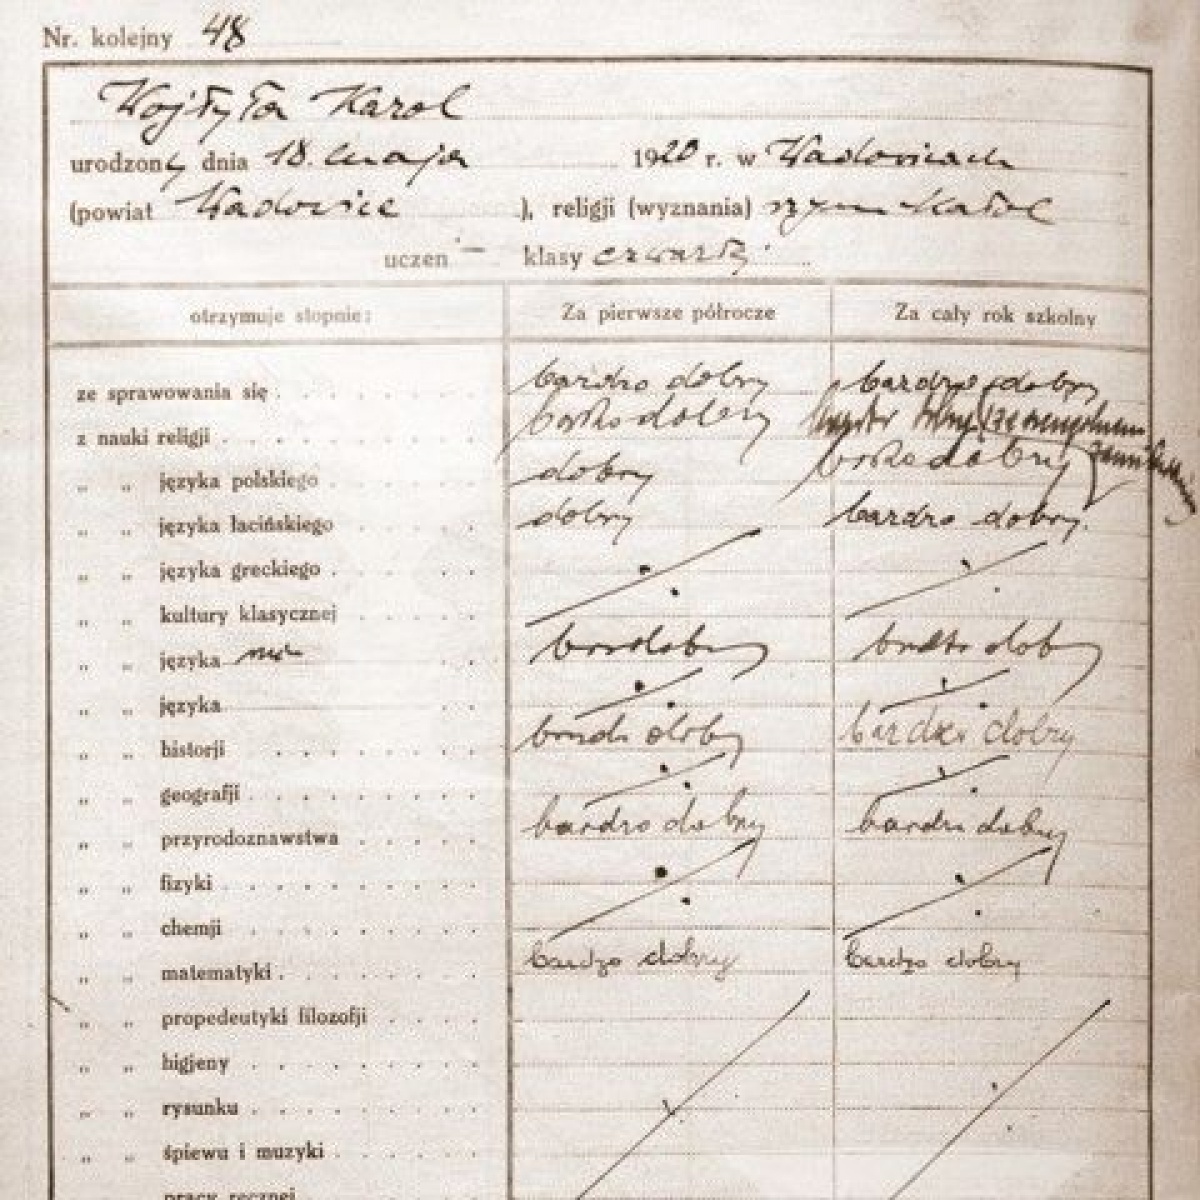 Nr. kolejny 48
Wojtyła Karol
urodzony dnia 18. maja 1920 r. w Wadowicach
(powiat Wadowice ), religji (wyznania) rzym katol
uczeń klasy czwartej
otrzymuje stopnie: Za pierwsze półrocze Za cały rok szkolny
ze sprawowania się bardzo dobry bardzo dobry
z nauki religji bardzo dobry bardzo dobry
„ „ języka polskiego dobry bardzo dobry
„ „ języka łacińskiego dobry bardzo dobry.
„ „ języka greckiego
„ „ kultury klasycznej
„ „ języka bardzo dobry bardzo dobry
„ „ języka
„ „ historji bardzo dobry bardzo dobry
„ „ geografji
„ „ przyrodoznawstwa bardzo dobry bardzo dobry
„ „ fizyki
„ „ chemji
„ „ matematyki bardzo dobry bardzo dobry
„ „ propedeutyki filozofji
„ „ higjeny
„ „ rysunku
„ „ śpiewu i muzyki
pracy ręcznej